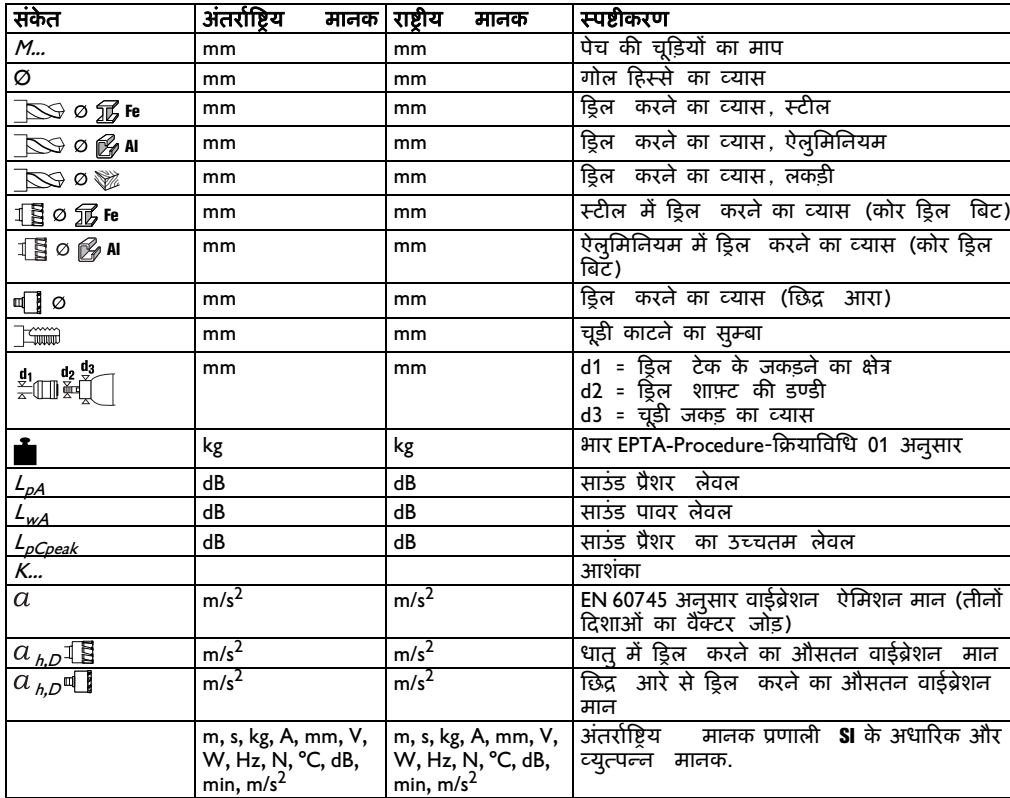 संकेत अंतर्राष्ट्रिय मानक राष्ट्रीय मानक स्पष्टीकरण
M... mm mm पेच की चूड़ियों का माप
Ø mm mm गोल हिस्से का व्यास
Ø Fe mm mm ड्रिल करने का व्यास, स्टील
Ø Al mm mm ड्रिल करने का व्यास, ऐलुमिनियम
Ø mm mm ड्रिल करने का व्यास, लकड़ी
Ø Fe mm mm स्टील में ड्रिल करने का व्यास (कोर ड्रिल बिट)
Ø Al mm mm ऐलुमिनियम में ड्रिल करने का व्यास (कोर ड्रिल
बिट)
Ø mm mm ड्रिल करने का व्यास (छिद्र आरा)
mm mm चूड़ी काटने का सुम्बा
d1 d2 d3 mm mm d1 = ड्रिल टेक के जकड़ने का क्षेत्र
d2 = ड्रिल शाफ़्ट की डण्डी
d3 = चूड़ी जकड़ का व्यास
kg kg भार EPTA-Procedure-क्रियाविधि 01 अनुसार
LpA dB dB साउंड प्रैशर लेवल
LwA dB dB साउंड पावर लेवल
LpCpeak dB dB साउंड प्रैशर का उच्चतम लेवल
K... आशंका
a m/s2 m/s2 EN 60745 अनुसार वाईब्रेशन ऐमिशन मान (तीनों
दिशाओं का वैक्टर जोड़)
a h,D m/s2 m/s2 धातु में ड्रिल करने का औसतन वाईब्रेशन मान
a h,D m/s2 m/s2 छिद्र आरे से ड्रिल करने का औसतन वाईब्रेशन
मान
m, s, kg, A, mm, V, m, s, kg, A, mm, V, अंतर्राष्ट्रिय मानक प्रणाली SI के अधारिक और
W, Hz, N, °C, dB, W, Hz, N, °C, dB, व्युत्पन्न मानक.
min, m/s2 min, m/s2